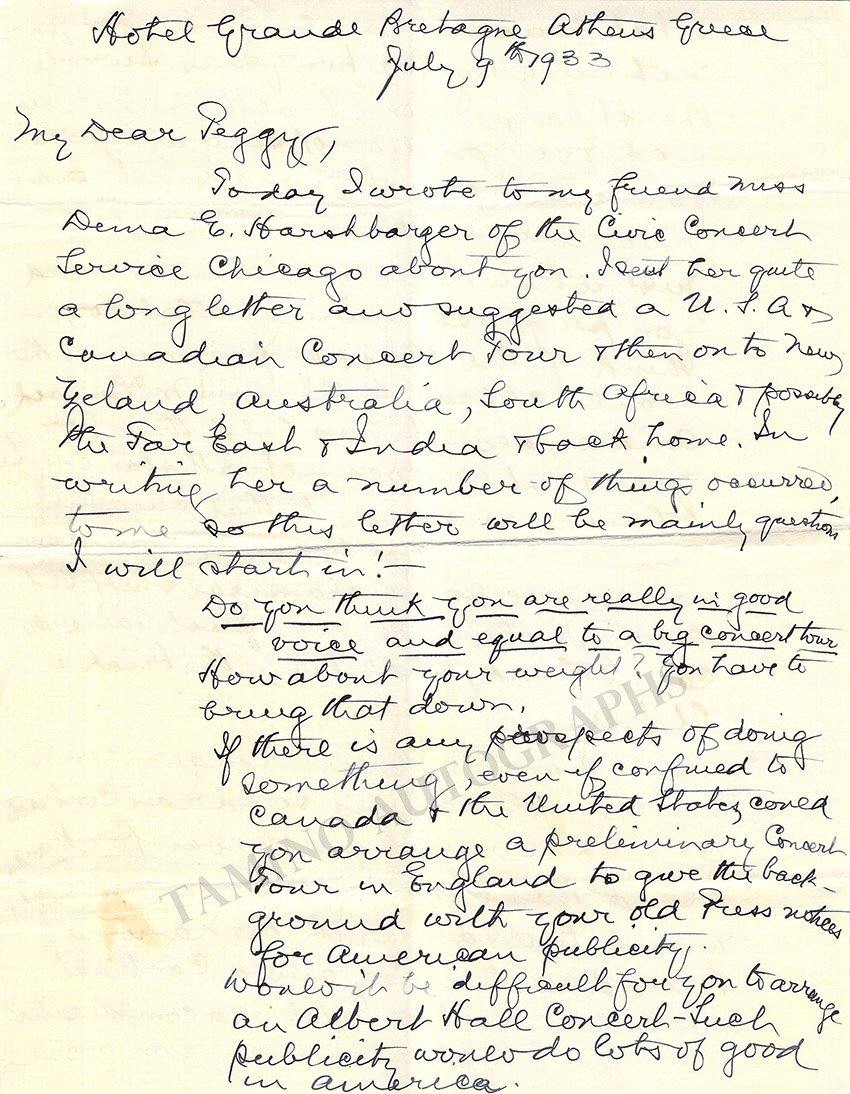 Hotel Grande Bretagne Athens Greece
July 9th 1933
My Dear Peggy,
Today I wrote to my friend Miss
Dema E. Harshbarger of the Civic Concert
Service Chicago about you. I sent her quite
a long letter and suggested a U.S.A &
Canadian Concert Tour & then on to New
Zeland, Australia, South Africa & possibly
the Far East & India & back home. In
writing her a number of things occurred
to me so this letter will be mainly questions
I will start in! —
Do you think you are really in good
voice and equal to a big concert tour
How about your weight? You have to
bring that down.
If there is any prospects of doing
something, even if confined to
Canada & the United States, could
you arrange a preliminary Concert
Tour in England to give the back-
ground with your old Press notices
for American publicity.
Would it be difficult for you to arrange
an Albert Hall Concert - Such
publicity would do lots of good
in America.
TAMINO AUTOGRAPHS